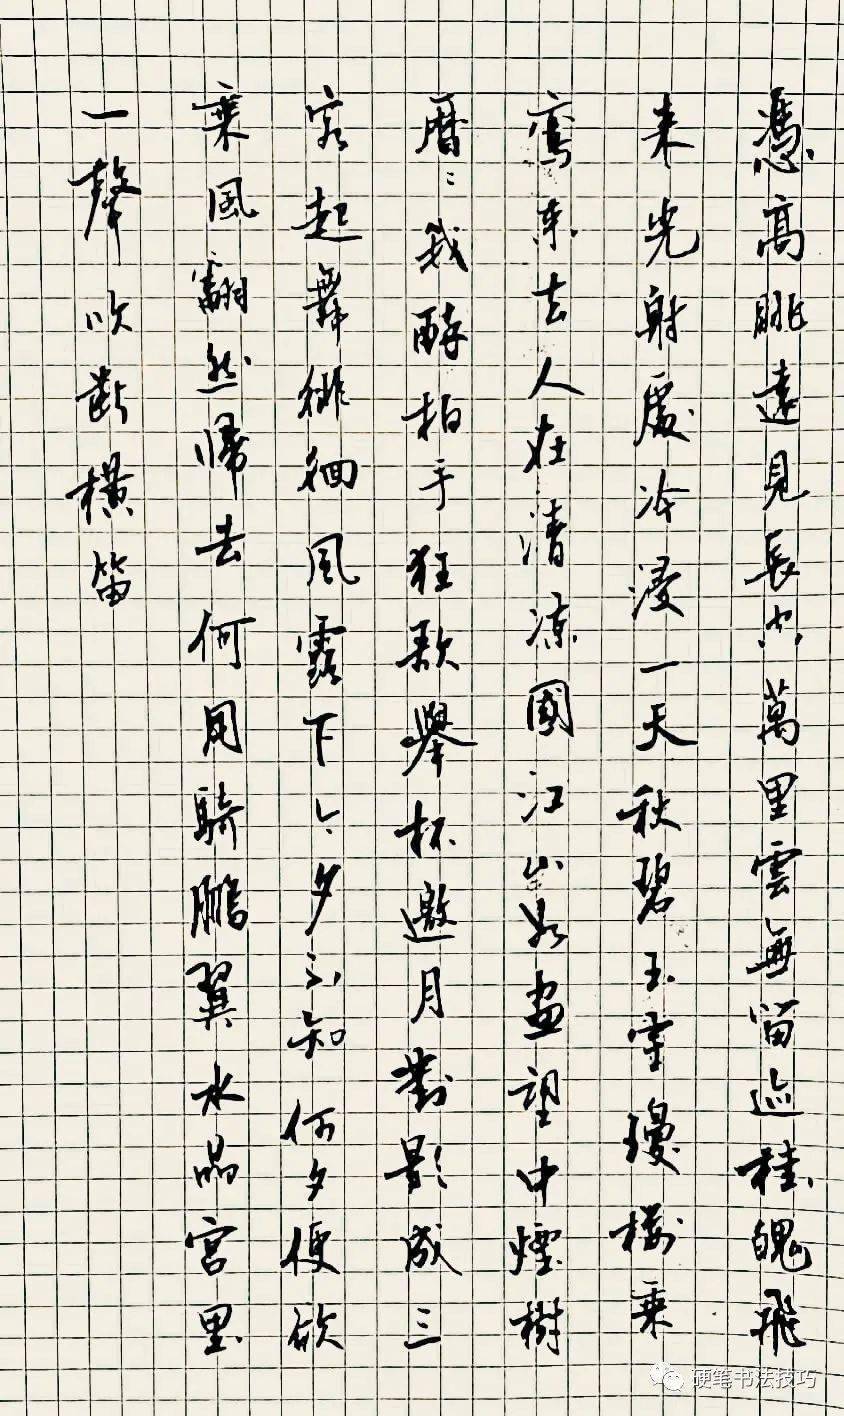 憑高眺遠見長空萬里雲無留迹桂魄飛
来光射處冷浸一天秋碧玉宇瓊樓乘
鸞来去人在清涼國江山如畫望中煙樹
歷〻我醉拍手狂歌舉杯邀月對影成三
客起舞徘徊風露下今夕不知何夕便欲
乘風翻然歸去何用騎鵬翼水晶宮里
一聲吹斷橫笛
硬笔书法技巧